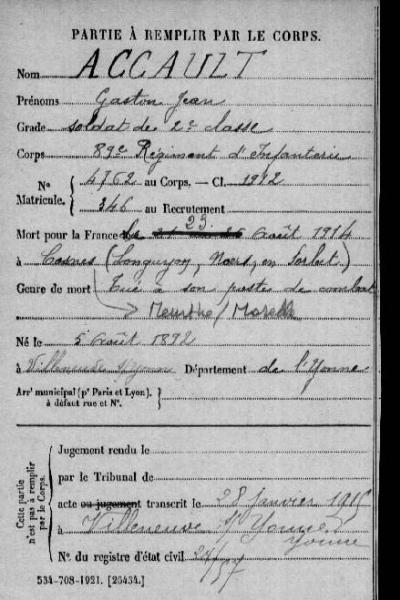 PARTIE À REMPLIR PAR LE CORPS.
Nom ACCAULT
Prénoms Gaston Jean
Grade soldat de 2e classe
Corps 89e Régiment d'Infanterie
N° Matricule. { 4762 au Corps. — Cl. 1912
346 au Recrutement
Mort pour la France le 23 Août 1914
à Cosnes (Longuyon, Noers, en Sorbet.)
Genre de mort Tué à son poste de combat
Meurthe / Moselle
Né le 5 Août 1892
à Villeneuve s/Yonne Département de l'Yonne
Arr' municipal (p' Paris et Lyon), à défaut rue et N°. }
Cette partie n'est pas à remplir par le Corps.
Jugement rendu le
par le Tribunal de
acte ou jugement transcrit le 28 janvier 1915
à Villeneuve s/ Yonne
Yonne
N° du registre d'état civil 24/57
534-708-1921. [26434.]